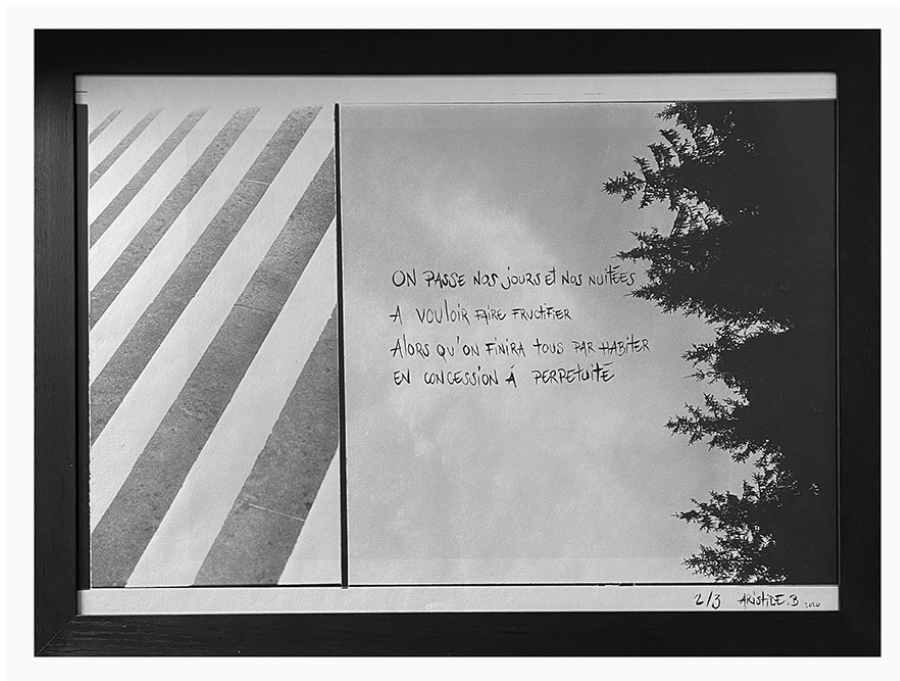 ON PASSE NOS JOURS Et NOS NUITÉES
A VOULOIR FAIRE FRUCTIFIER
ALORS QU'ON FINIRA tOUS PAR HABITER
EN CONCESSION À PERPETUITÉ
2/3 ARIStiDE.B